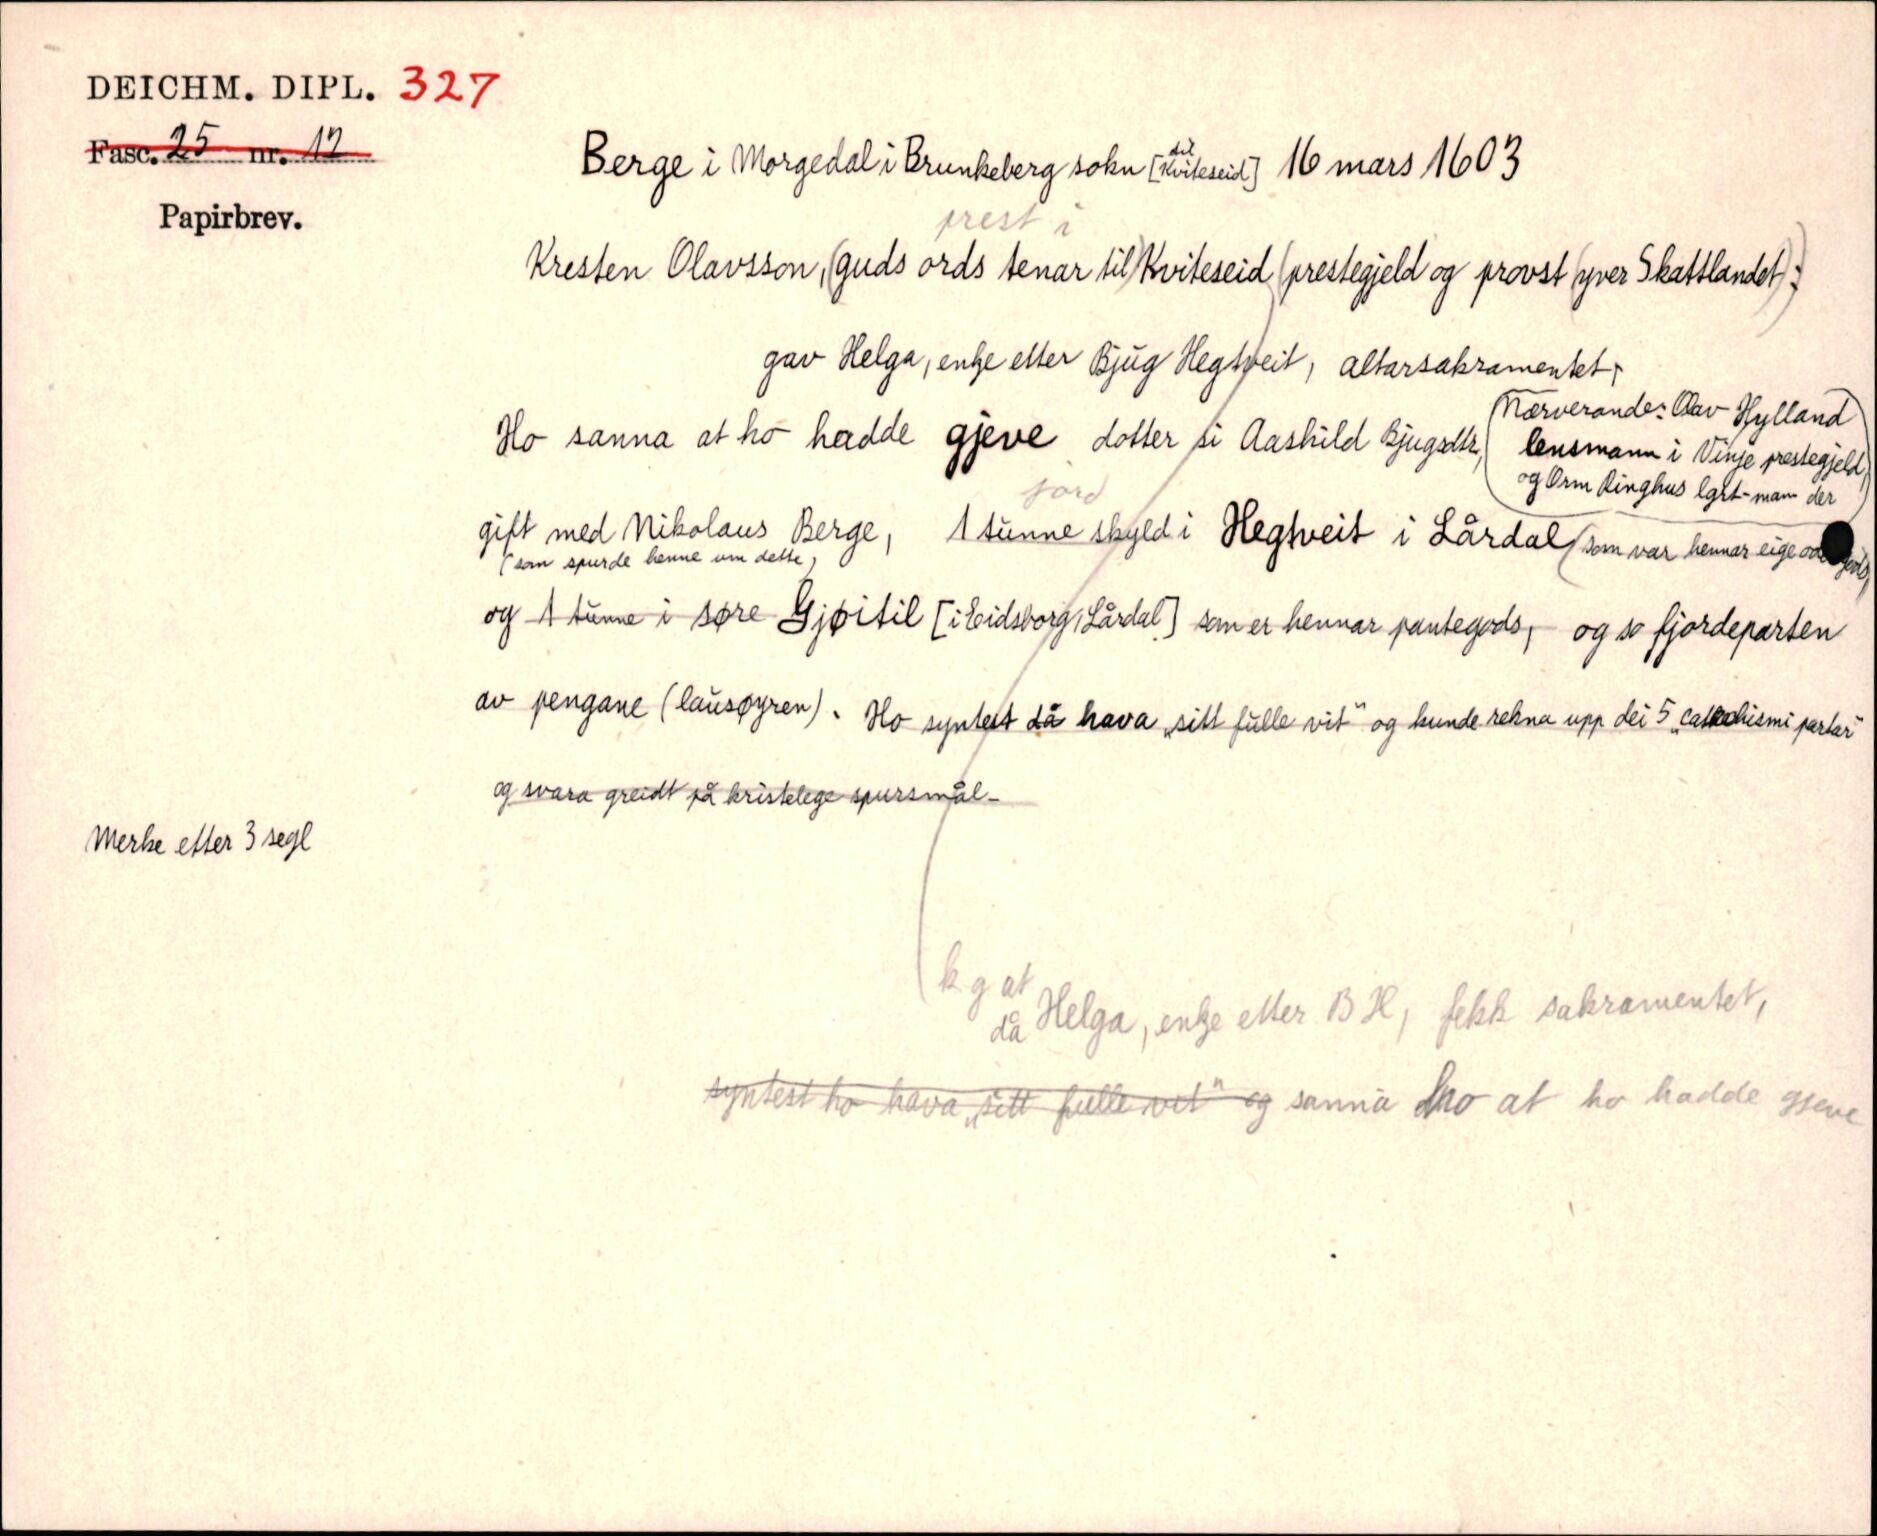 DEICHM. DIPL. 327
Fasc. 25 nr. 12
Papirbrev.
Berge i Morgedal i Brunkeberg sokn [til Kviteseid] 16 mars 1603
prest i
Kresten Olavsson, (guds ords tenar til) Kviteseid (prestegjeld og provst (yver Skattlandet):)
gav Helga, enkje etter Bjug Hegtveit, altarsakramentet,
Ho sanna at ho hadde gjeve dotter si Aashild Bjugsdtr,
(Nærverande: Olav Hylland
lensmann i Vinje prestegjeld,
og Orm Ringhus lgrt-mann der)
jord
gift med Nikolaus Berge, 1 tunne skyld i Hegtveit i Lårdal (som var hennar eige
(som spurde henne um dette)
og 1 tunne i søre Gjøitil [i Eidsborg, Lårdal] som er hennar pantegods, og so fjordeparten
av pengane (lausøyren). Ho syntest då hava „sitt fulle vit" og kunde rekna upp dei 5 „catechismi partar"
og svara greidt på kristelege spursmål_
Merke etter 3 segl
k g at
då Helga, enkje etter B H, fekk sakramentet,
syntest ho hava „sitt fulle vit" og sanna ho at ho hadde gjeve